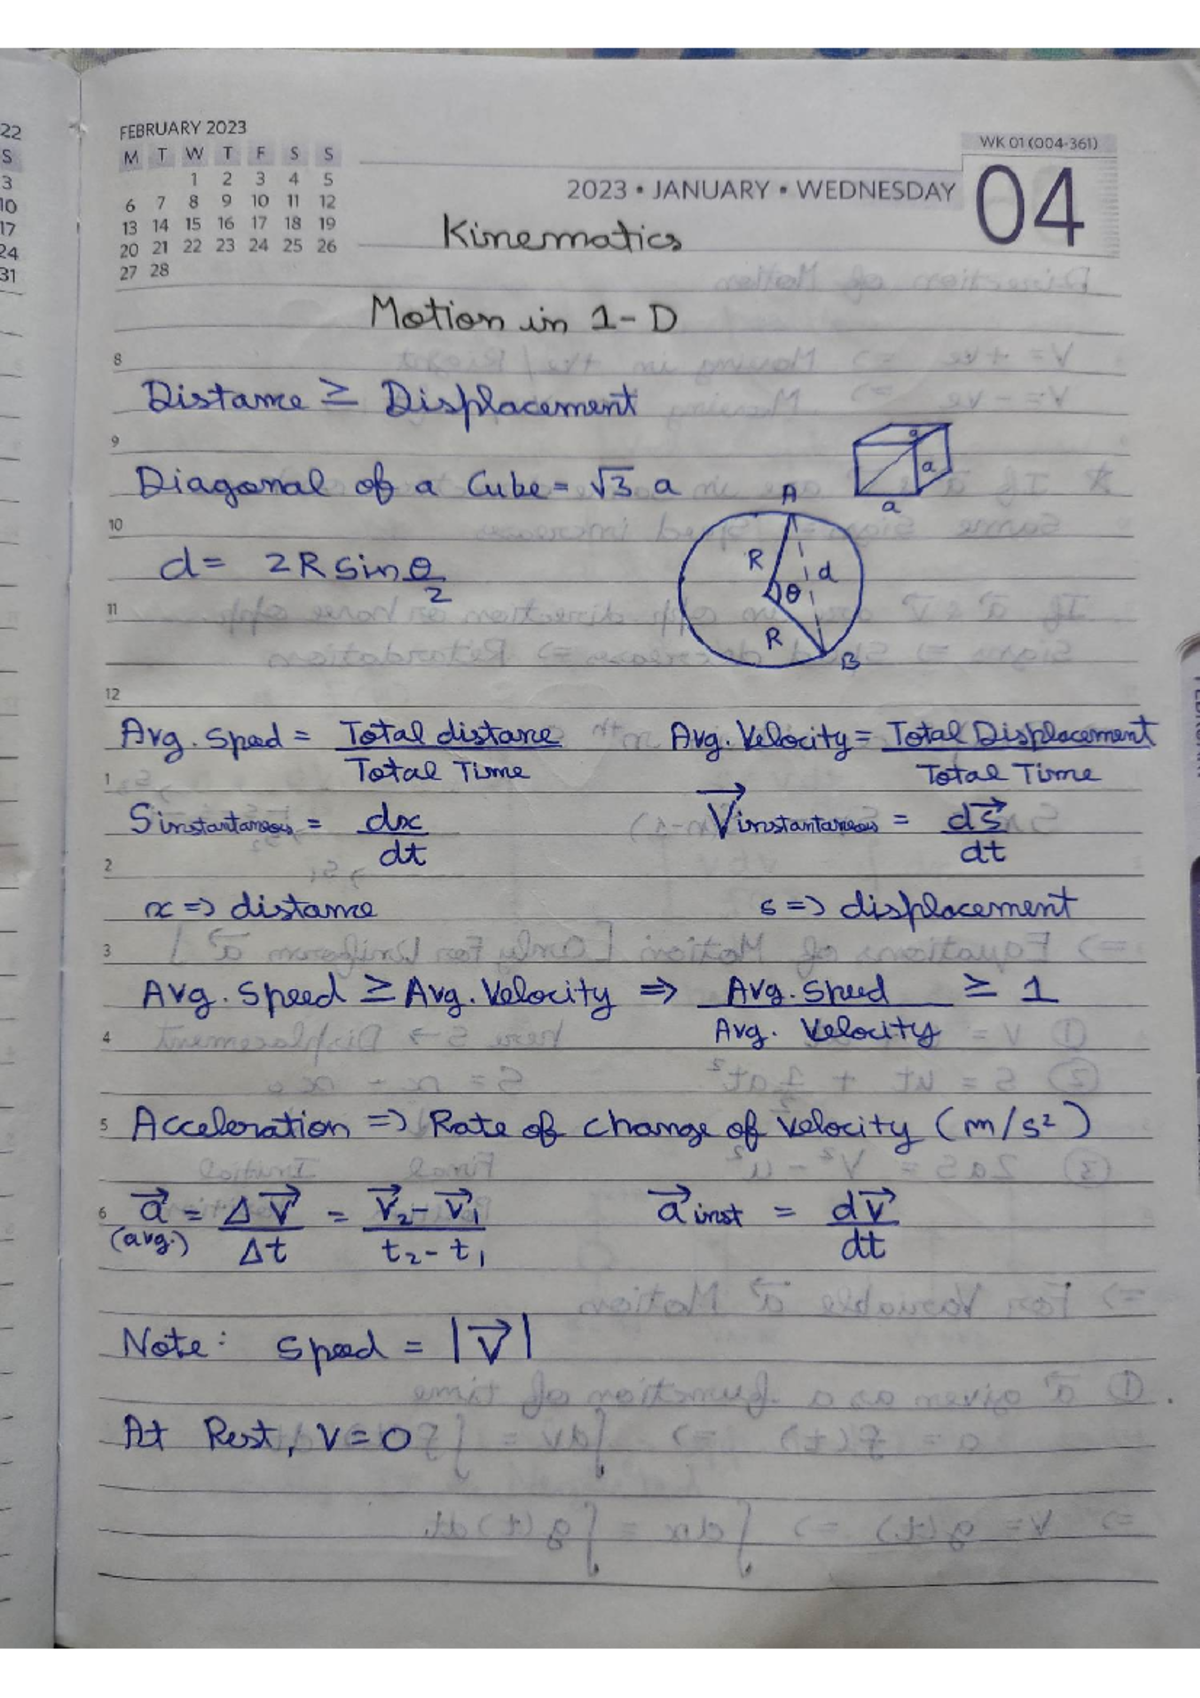 22
S
3
10
17
24
31
FEBRUARY 2023
M T W T F S S
1 2 3 4 5
6 7 8 9 10 11 12
13 14 15 16 17 18 19
20 21 22 23 24 25 26
27 28
WK 01 (004-361)
2023 • JANUARY • WEDNESDAY
04
Kinematics
Motion in 1-D
8
Distance ≥ Displacement
9
Diagonal of a Cube = √3 a
a
a
a
10
d = 2R sin θ/2
A
R
d
θ
R
B
11
12
Avg. Speed = Total distance / Total Time
Avg. Velocity = Total Displacement / Total Time
1
S instantaneous = dx/dt
V⃗ instantaneous = ds⃗/dt
2
x => distance
s => displacement
3
Avg. Speed ≥ Avg. Velocity => Avg. Speed / Avg. Velocity ≥ 1
4
5
Acceleration => Rate of change of velocity (m/s²)
6
a⃗ (avg.) = ΔV⃗/Δt = V⃗₂ - V⃗₁ / t₂ - t₁
a⃗ inst = dV⃗/dt
Note: Speed = |V⃗|
At Rest, V = 0